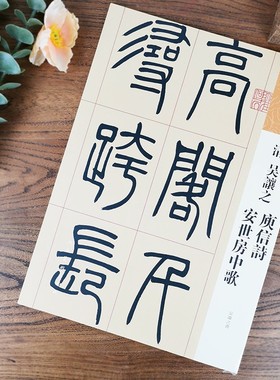 高閣千
尋跨長
清 吳讓之 庾信詩
安世房中歌